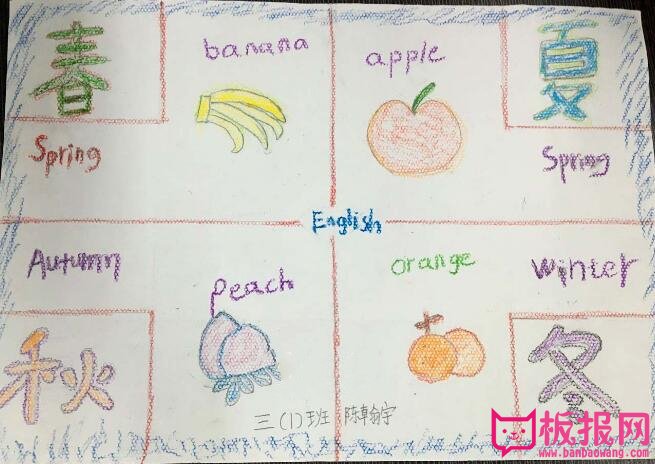 春
banana
apple
夏
Spring
Spring
English
Autumn
peach
orange
winter
秋
冬
三(1)班 陈卓翰宇
板报网
www.banbaowang.com